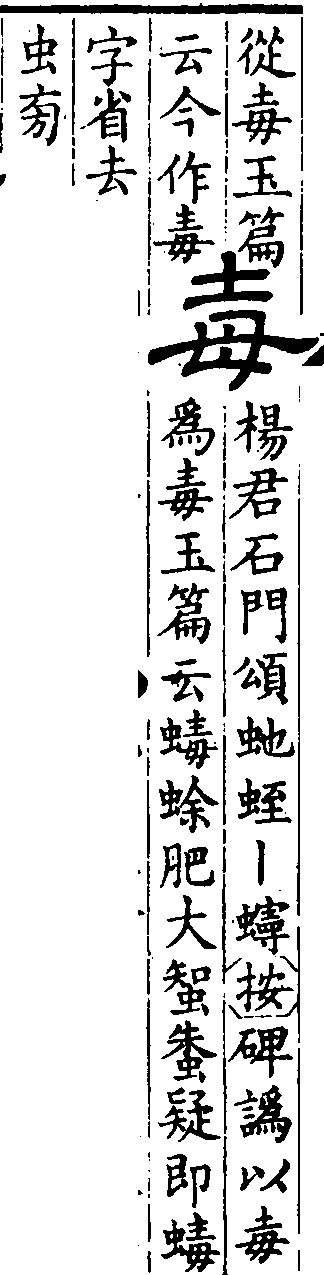 從毒玉篇
云今作毒
毒
楊君石門頌虵蛭丨蟃按碑譌以毒
爲毒玉篇云䗋蜍肥大蜘蛛疑即䗋
字省去
虫㫄